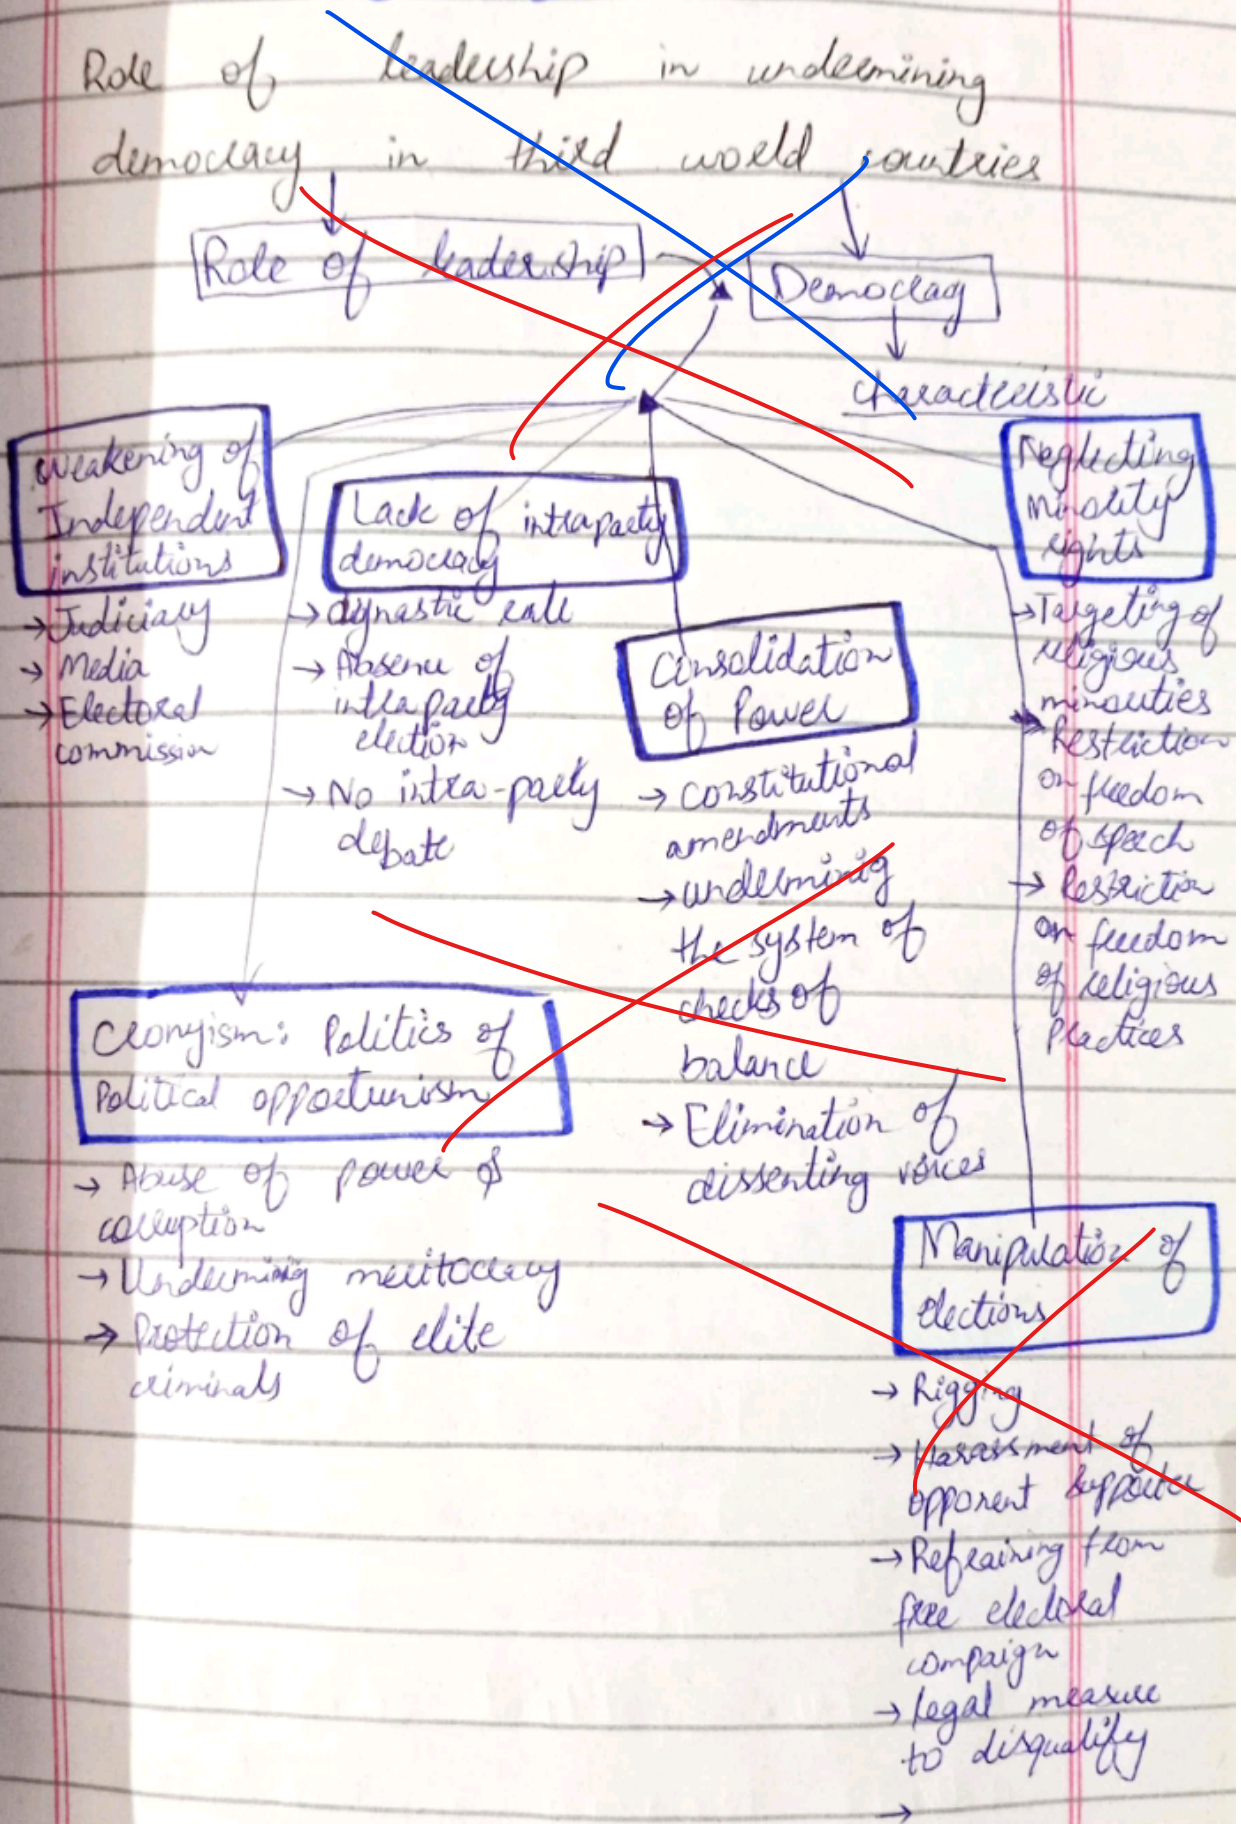 Role of leadership in undermining
democracy in third world countries
Role of leadership
Democracy
Characteristic
Weakening of
Independent
institutions
→ Judiciary
→ Media
→ Electoral
commission
Lack of intraparty
democracy
→ dynastic rule
→ Absence of
intraparty
election
→ No intra-party
debate
Consolidation
of Power
→ constitutional
amendments
→ underminig
the system of
checks of
balance
→ Elimination of
dissenting voices
Neglecting
minority
rights
→ Targeting of
religious
minorities
→ Restriction
on freedom
of speech
→ Restriction
on freedom
of religious
Practices
Cronyism: Politics of
Political opportunism
→ Abuse of power &
corruption
→ Undermining meritocracy
→ Protection of elite
criminals
Manipulation of
elections
→ Rigging
→ Harassment of
opponent supporter
→ Refraining from
free electoral
compaign
→ legal measure
to disqualify
→